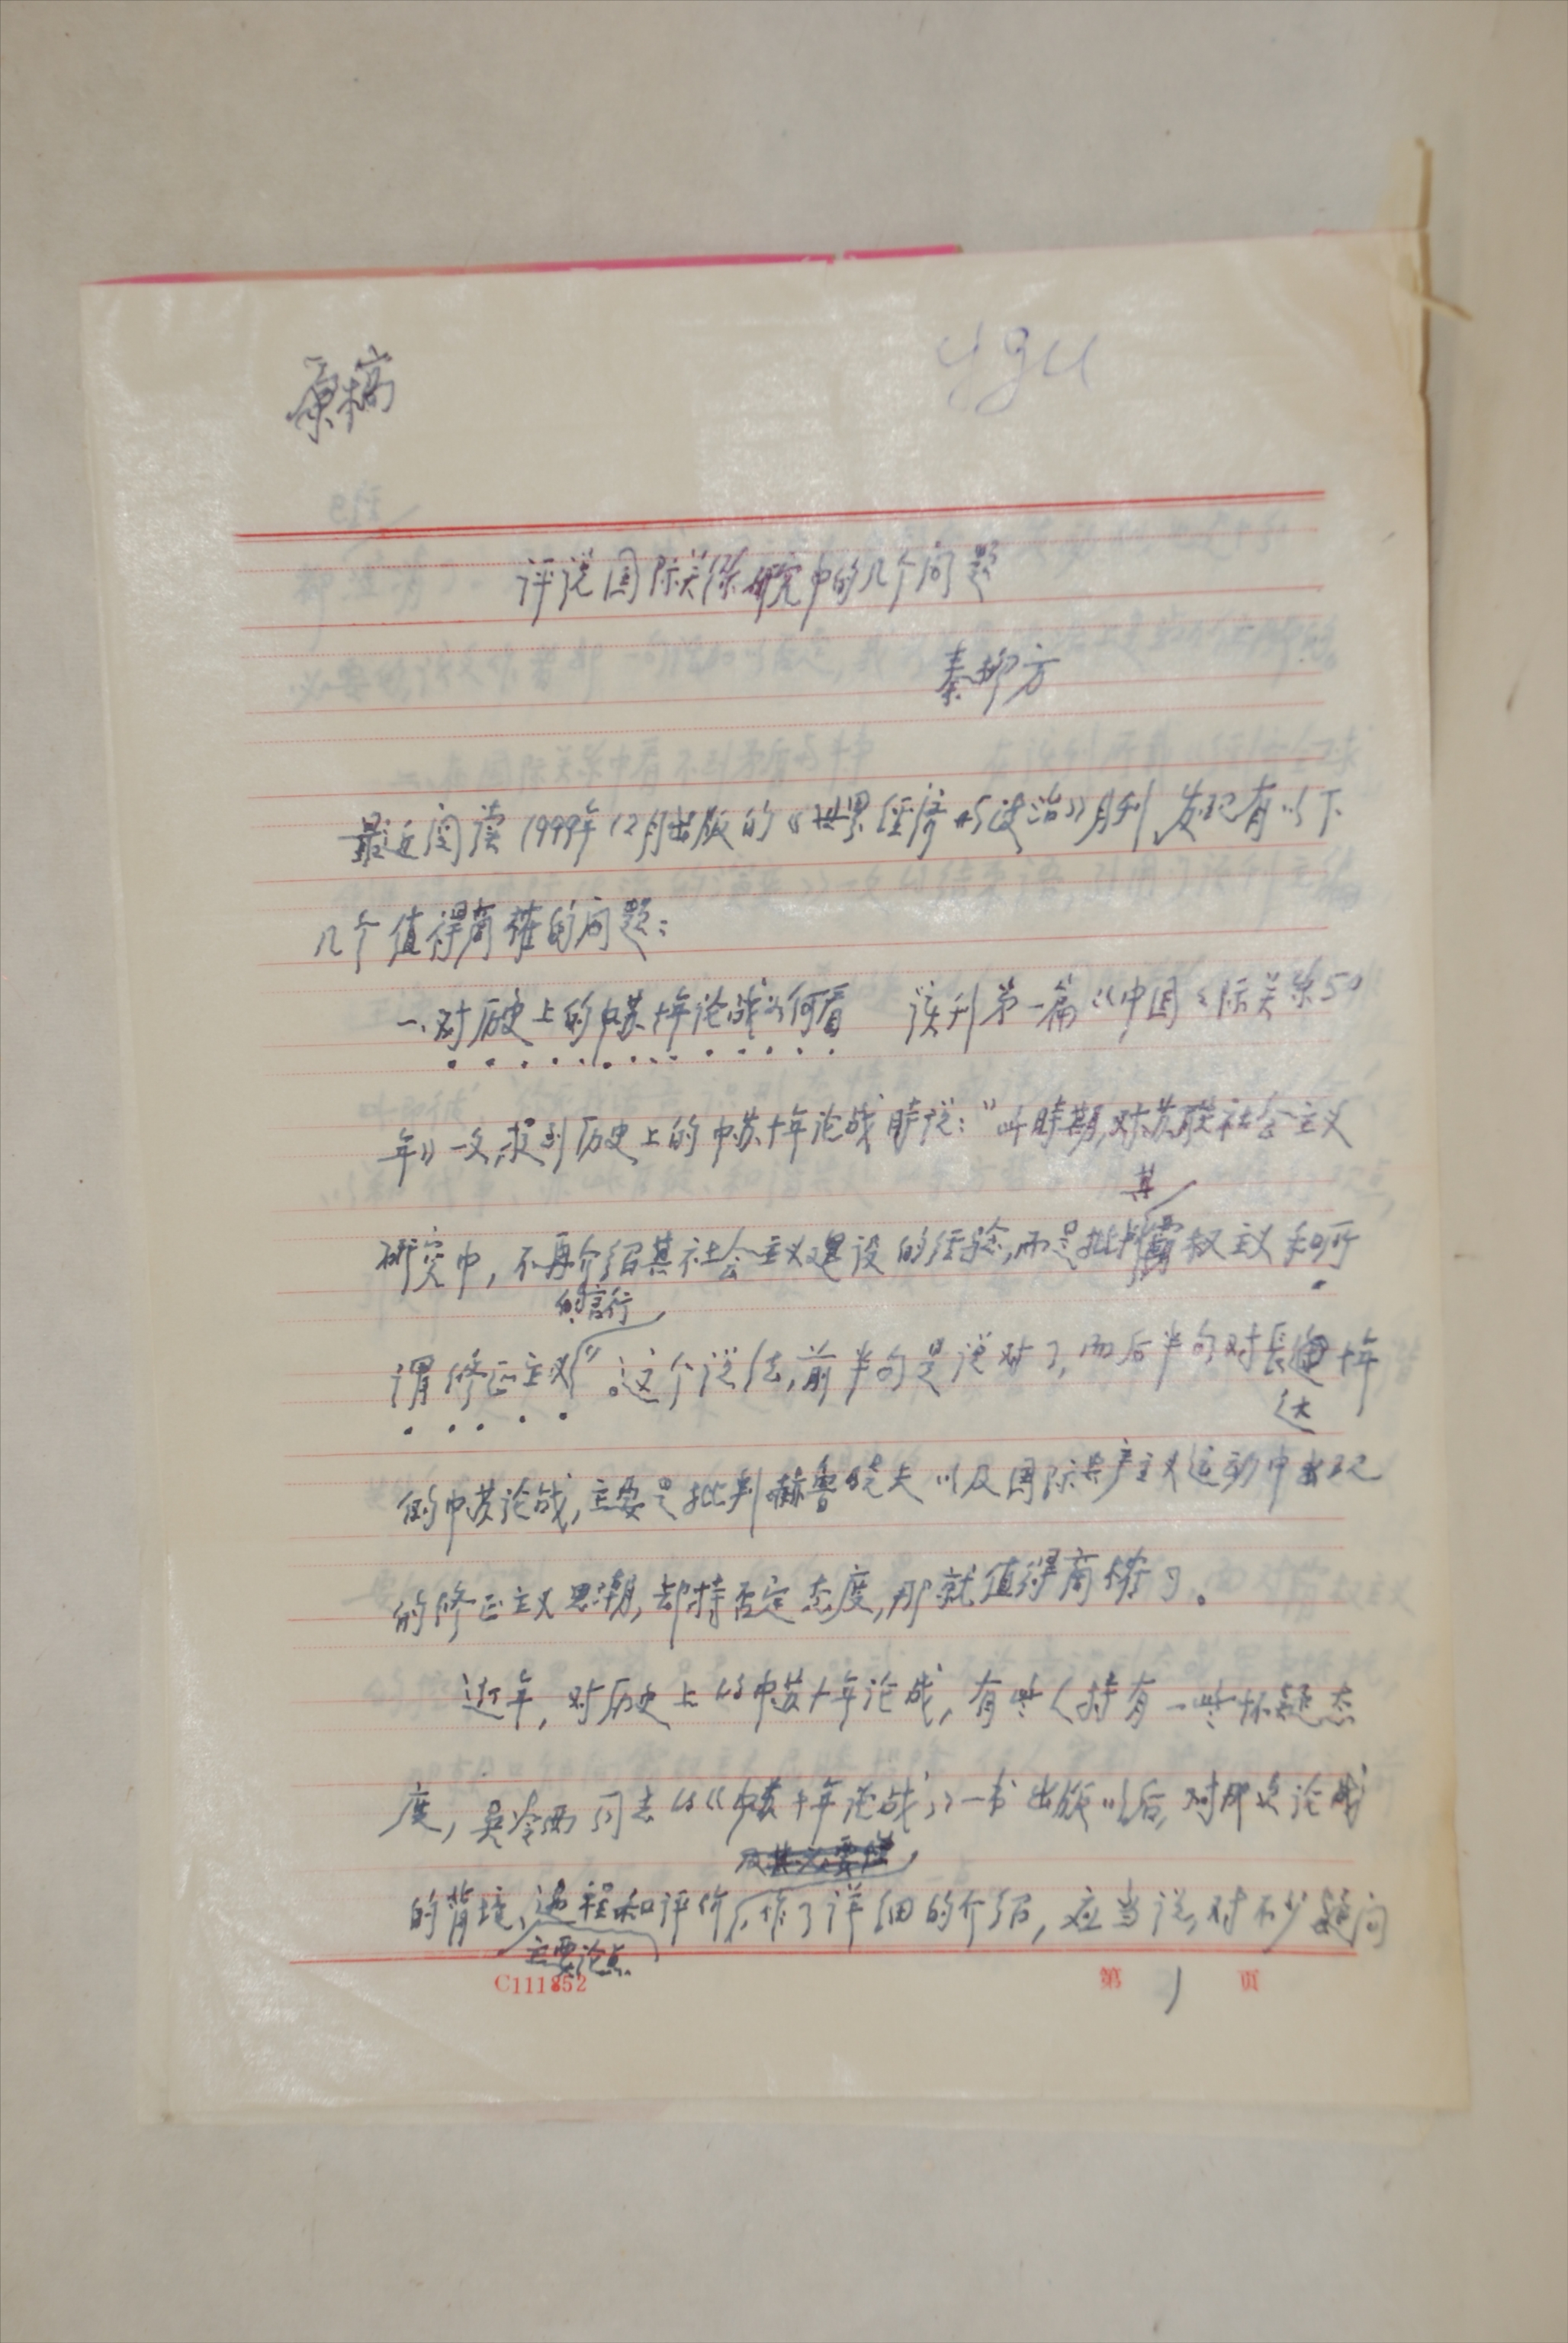 原稿
评说国际关系研究中的几个问题
秦柳方
最近阅读1999年12月出版的《世界经济与政治》月刊,发现有以下
几个值得商榷的问题:
一、对历史上的中苏十年论战如何看 该刊第一篇《中国国际关系50
年》一文,提到历史上的中苏十年论战时说:"此时期,对苏联社会主义
其
研究中,不再介绍其社会主义建设的经验,而是批判霸权主义和所
的言行
谓修正主义"。这个说法,前半句是说对了,而后半句对长达十年
达
的中苏论战,主要是批判赫鲁晓夫以及国际共产主义运动中出现
的修正主义思潮,却持否定态度,那就值得商榷了。
近年,对历史上的中苏十年论战,有些人持有一些怀疑态
度,吴冷西同志的《中苏十年论战》一书出版以后,对那次论战
及其必要性
的背境、过程和评价,作了详细的介绍,应当说,对不少疑问
主要论点
C111852 第 1 页